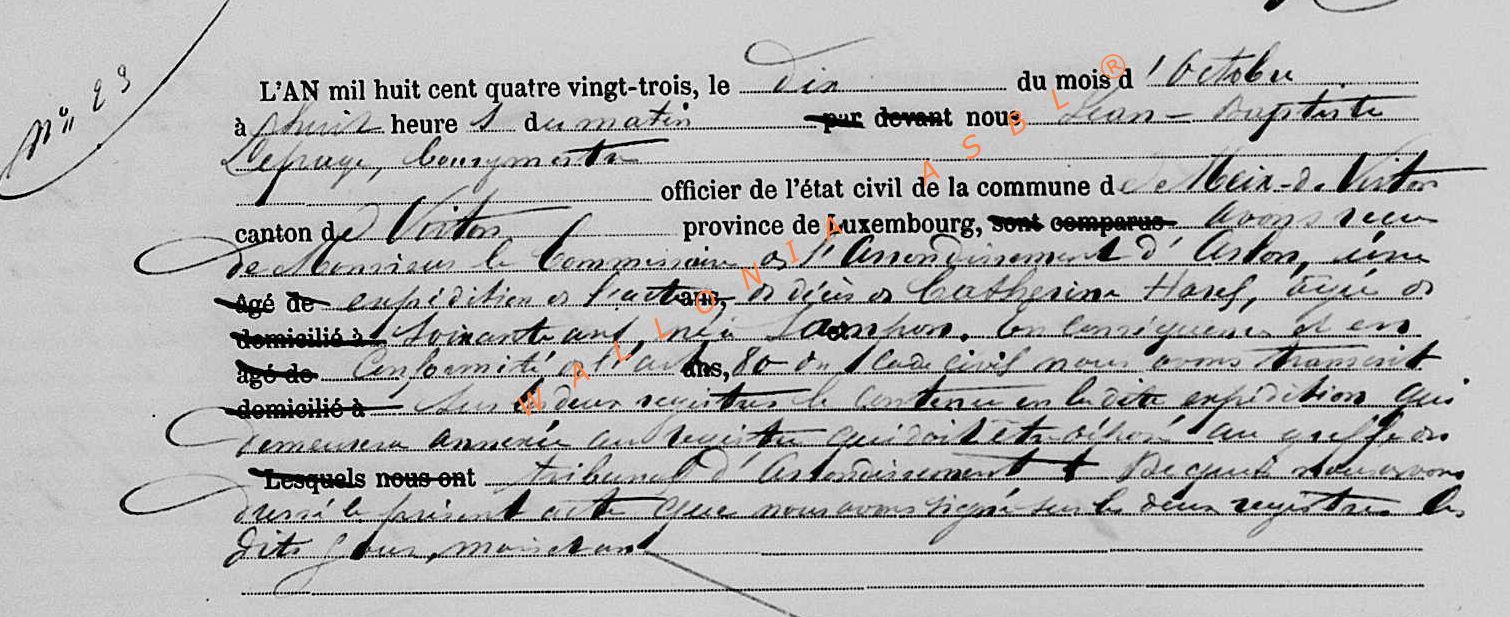 N° 23
L'AN mil huit cent quatre vingt-trois, le dix du mois d'Octobre
à huit heures du matin par devant nous Jean-Baptiste
Lepage, bourgmestre
officier de l'état civil de la commune de Meix-de-Virton
canton de Virton province de Luxembourg, sont comparus avons reçu
de Monsieur le Commissaire de l'Arrondissement d'Arlon, une
Agé de expédition de l'acte ans, de décès de Catherine Hansf, âgée de
domicilié à Soixante ans, née à . En conséquence et en
âgé de Conformité de l'art ans, 80 du Code civil nous avons transcrit
domicilié à Sur les deux registres le contenu en ladite expédition qui
demeurera annexée au registre qui doit être déposé au greffe du
Lesquels nous ont tribunal d'Arrondissement De quoi nous avons
dressé le présent acte que nous avons signé sur les deux registres les
dits jour, mois et an
WALLONIA ASBL ®